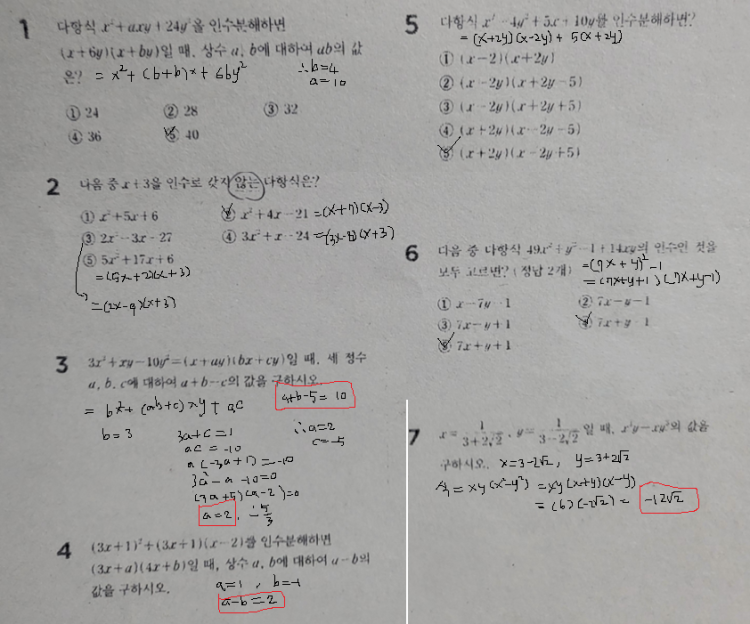 1 다항식 x²+axy+24y²을 인수분해하면
(x+6y)(x+by)일 때, 상수 a, b에 대하여 ab의 값
은? = x²+(6+b)x+6by² ∴b=4
a=10
① 24 ② 28 ③ 32
④ 36 ⑤ 40
2 다음 중 x+3을 인수로 갖지 않는 다항식은?
① x²+5x+6 ② x²+4x-21 =(x+7)(x-3)
③ 2x²-3x-27 ④ 3x²+x-24 =(3x-8)(x+3)
⑤ 5x²+17x+6
=(5x+2)(x+3)
=(2x-9)(x+3)
3 3x²+xy-10y²=(x+ay)(bx+cy)일 때, 세 정수
a, b, c에 대하여 a+b-c의 값을 구하시오.
= bx²+(ab+c)xy+ac
b=3 3a+c=1 ∴a=2
ac=-10 c=-5
a(-3a+1)=-10
3a²-a-10=0
(3a+5)(a-2)=0
a=2, -5/3
4 (3x+1)²+(3x+1)(x-2)를 인수분해하면
(3x+a)(4x+b)일 때, 상수 a, b에 대하여 a-b의
값을 구하시오. a=1, b=-1
a-b=2
5 다항식 x²-4y²+5x+10y를 인수분해하면?
=(x+2y)(x-2y)+5(x+2y)
① (x-2)(x+2y)
② (x-2y)(x+2y-5)
③ (x-2y)(x+2y+5)
④ (x+2y)(x-2y-5)
⑤ (x+2y)(x-2y+5)
6 다음 중 다항식 49x²+y²-1+14xy의 인수인 것을
모두 고르면? (정답 2개) =(7x+y)²-1
=(7x+y+1)(7x+y-1)
① x-7y-1 ② 7x-y-1
③ 7x-y+1 ④ 7x+y-1
⑤ 7x+y+1
7 x=1/(3+2√2), y=1/(3-2√2)일 때, x³y-xy³의 값을
구하시오. x=3-2√2, y=3+2√2
=xy(x²-y²)=xy(x+y)(x-y)
=(6)(-2√2)= -12√2